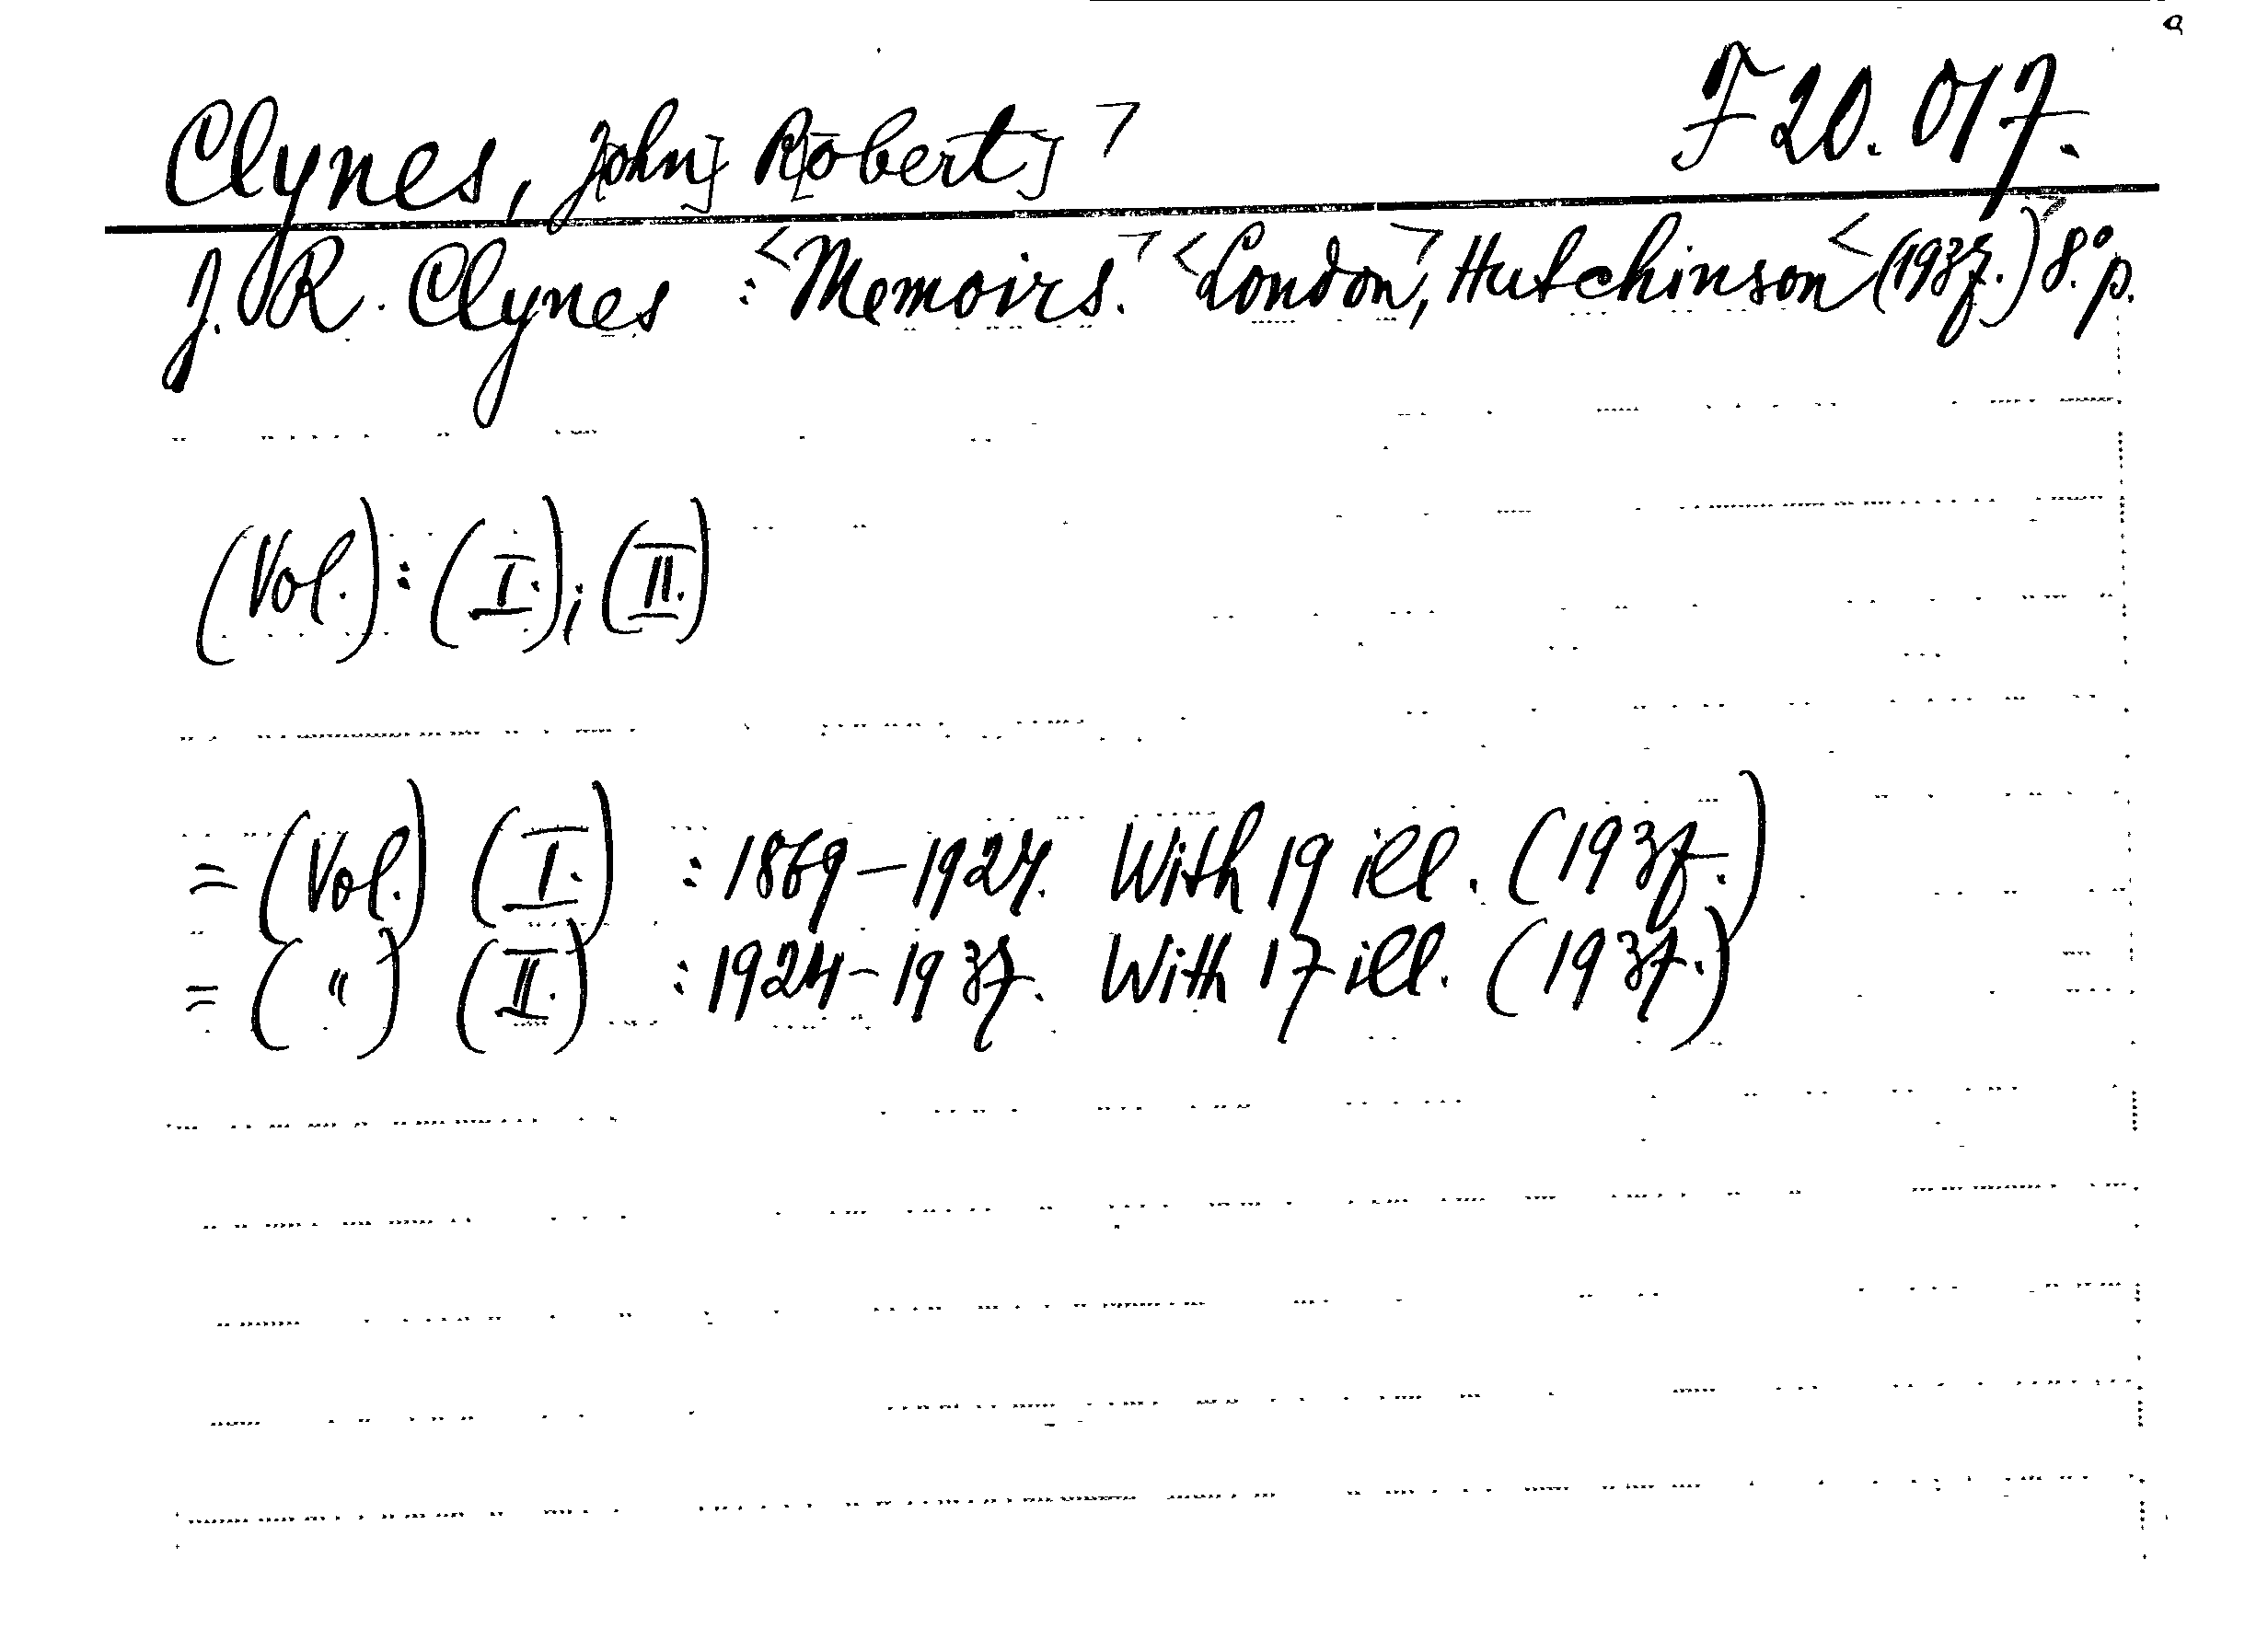 Clynes, J[ohn] R[obert] F 20.017.
J. R. Clynes : Memoirs. London, Hutchinson (1937.) 8.° p.
(Vol.) : (I.); (II.)
= (Vol.) (I.) : 1869–1924. With 19 ill. (1937.)
= ( " ) (II.) : 1924–1937. With 17 ill. (1937.)